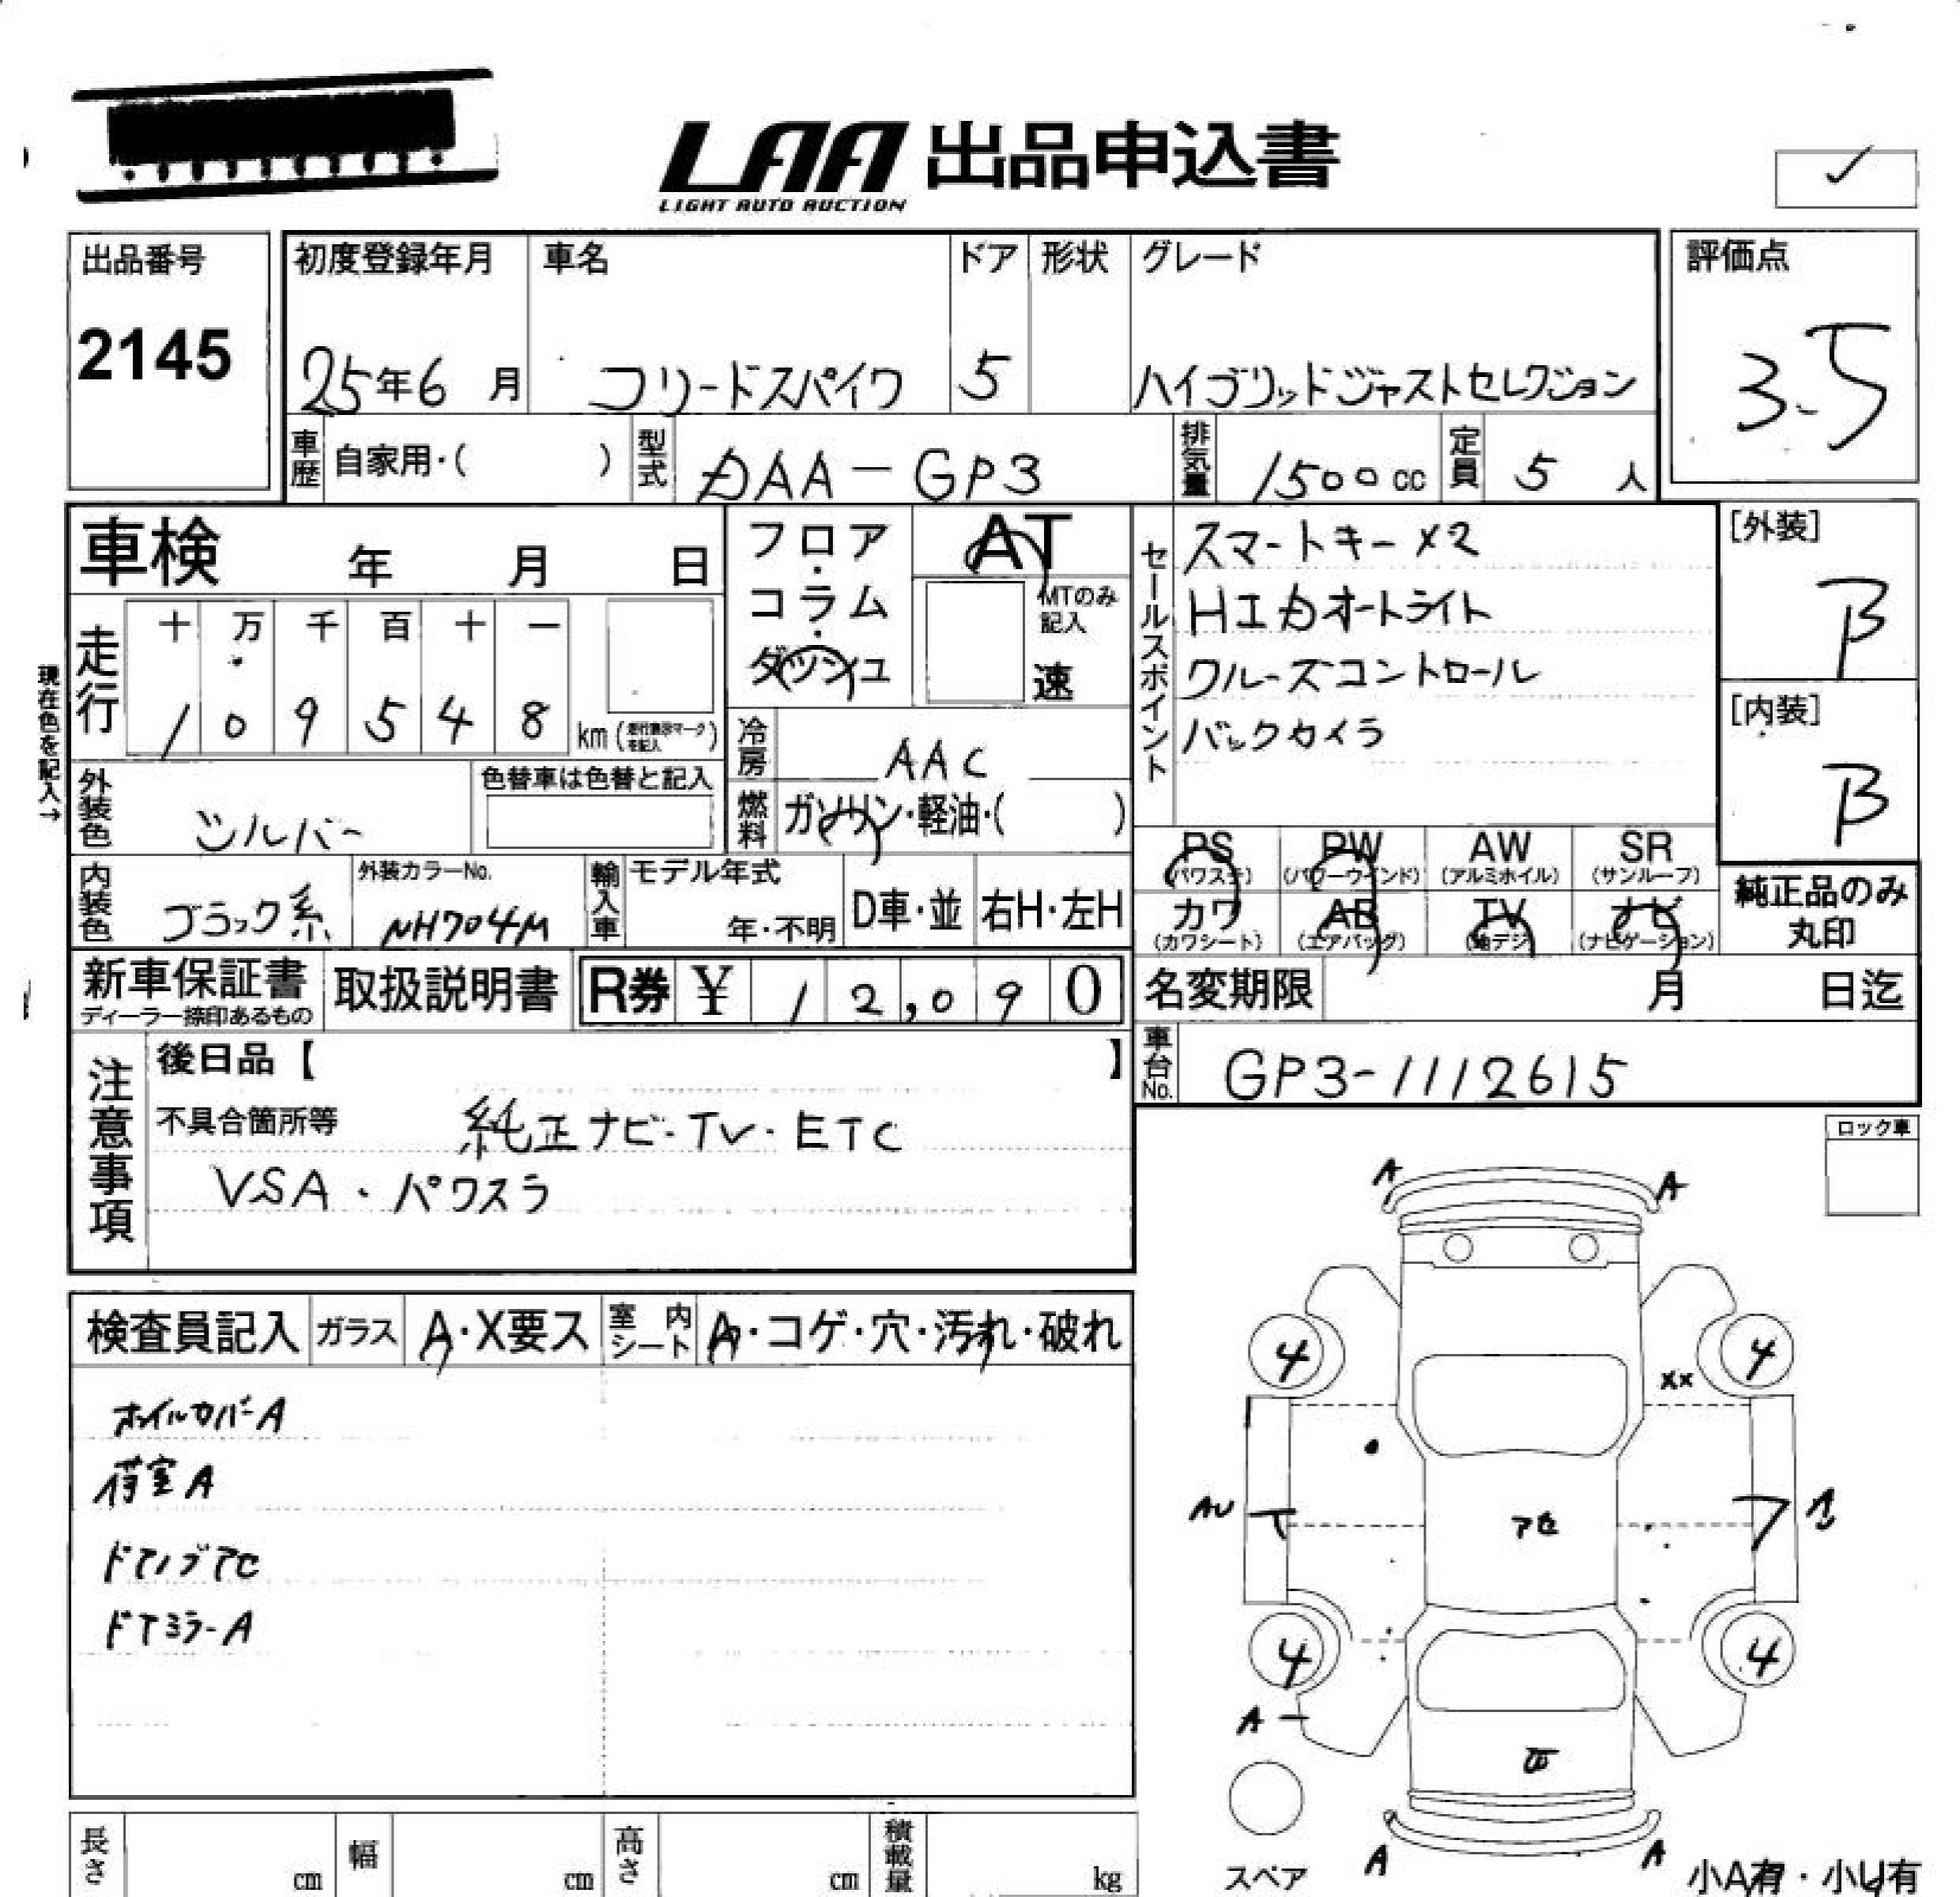 LAA 出品申込書
LIGHT AUTO AUCTION
出品番号
2145
初度登録年月
25年6月
車名
フリードスパイク
ドア
5
形状
グレード
ハイブリッドジャストセレクション
評価点
3.5
車歴 自家用・( )
型式 DAA-GP3
排気量 1500cc
定員 5人
車検 年 月 日
走行
十 万 千 百 十 一
1 0 9 5 4 8 km
現在色を記入→
フロア・コラム・ダッシュ
AT
MTのみ記入
速
冷房 AAC
燃料 ガソリン・軽油・( )
セールスポイント
スマートキー×2
HIDオートライト
クルーズコントロール
バックカメラ
[外装]
B
[内装]
B
外装色 シルバー
色替車は色替と記入
内装色 ブラック系
外装カラーNo.
NH704M
輸入車
モデル年式
年・不明
D車・並
右H・左H
PS (パワステ)
PW (パワーウインド)
AW (アルミホイル)
SR (サンルーフ)
カワ (カワシート)
AB (エアバッグ)
TV (地デジ)
ナビ (ナビゲーション)
純正品のみ丸印
新車保証書
ディーラー捺印あるもの
取扱説明書
R券 ¥ 12,090
名変期限 月 日迄
車台No. GP3-1112615
注意事項
後日品【 】
不具合箇所等 純正ナビ・TV・ETC
VSA・パワスラ
ロック車
検査員記入
ガラス A・X要ス
室内シート A・コゲ・穴・汚れ・破れ
ホイルカバーA
荷室A
ドアノブアセ
ドアミラーA
A A
4 4
XX
AU
アセ
4 4
A
A A
スペア
小A有・小U有
長さ cm
幅 cm
高さ cm
積載量 kg